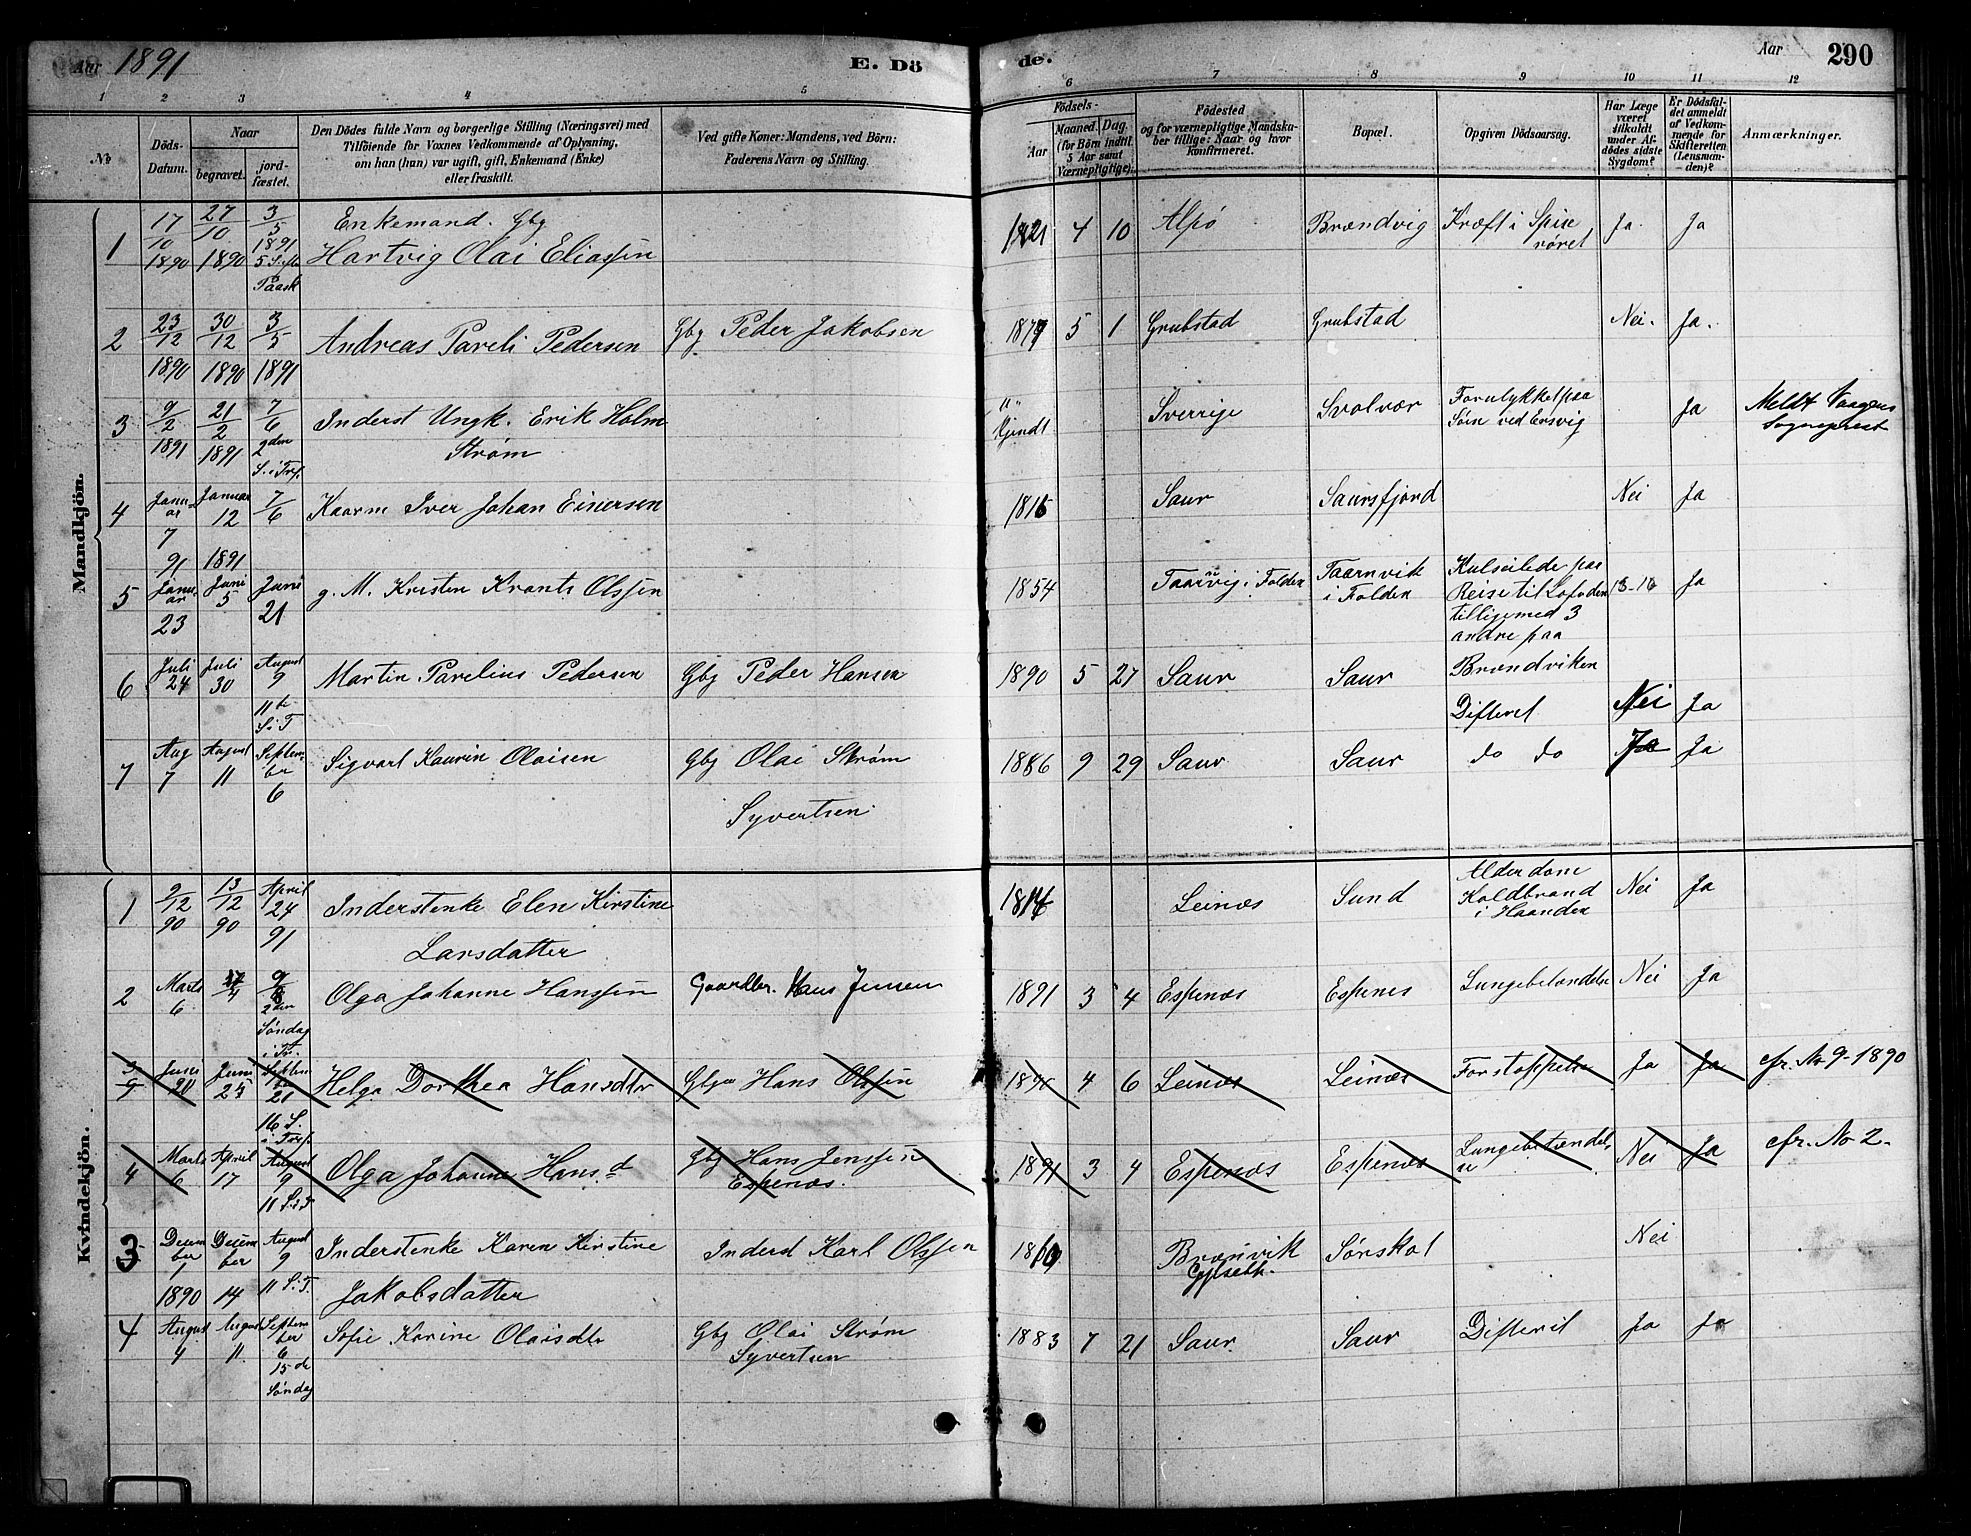 Aar 1891
E. Dö
de.
Aar
290
1 2 3 4 5 6 7 8 9 10 11 12
No
Döds-Datum.
Naar
begravet.
jord-fæstet.
Den Dödes fulde Navn og borgerlige Stilling (Næringsvei) med
Tilföiende for Voxnes Vedkommende af Oplysning,
om han (hun) var ugift, gift, Enkemand (Enke)
eller fraskilt.
Ved gifte Koner: Mandens, ved Börn:
Faderens Navn og Stilling.
Födsels-
Aar
Maaned. Dag.
(for Börn indtil
5 Aar samt
Værnepligtige).
Födested
og for værnepligtige Mandska-
ber tillige: Naar og hvor
konfirmeret.
Bopæl.
Opgiven Dödsaarsag.
Har Læge
været
tilkaldt
under Af-
dödes sidste
Sygdom?
Er Dödsfal-
det anmeldt
af Vedkom-
mende for
Skifteretten
(Lensman-
den)?
Anmærkninger.
Mandkjön.
1 17/10 1890 27/10 1890 3/5 1891 Enkemand. Gbg
Hartvig Olai Eliassen 1821 4 10 Alpø Brændvig Kræft i Spise
røret Ja. Ja
Paask
2 23/12 1890 30/12 1890 3/5 1891 Andreas Pareli Pedersen Gbg Peder Jakobsen 1877 5 1 Grubstad Grubstad Nei. Ja.
3 9/2 1891 21/2 1891 7/6 2den S. i Tref. Inderst Ungk. Erik Holm
Strøm Sverrige Svolvær Forulykket paa
Søen ved Ersvig Ja Meldt Vaagens
Sogneprest
4 Januar 7 91 Januar 12 1891 7/6 Kaarm Iver Johan Einersen Saur Saursfjord Nei Ja
5 Januar 23 Juni 5 Juni 21 g. M. Kristen Krants Olssen 1854 Taarvig i Folden Taarnvik
i Folden Kulseilede paa
Reise til Lofoden
tilligemed 3
andre paa
Brændviken Ja
6 Juli 24 Juli 30 August 9 11te S. i T Martin Parelius Pedersen Gbg Peder Hansen 1890 5 27 Saur Saur
Difterit Nei Ja
7 Aug 7 August 11 September 6 Sigvart Kaurin Olaisen Gbg Olai Strøm
Syvertsen 1886 9 29 Saur Saur do do Ja Ja
Kvindekjön.
1 9/12 90 13/12 90 April 24 91 Inderstenke Elen Kirstine
Larsdatter Leines Sund Alderdom
Koldbrand
i Haanden Nei Ja
2 Marts 6 2den Søndag i Tr. Olga Johanne Hanssen Gaardbr. Hans Jensen 1891 3 4 Espenæs Espenes Lungebetændelse Nei Ja
Juni 20 Juni 25 Septem ber 21 16 S. i Tref. Helga Dorthea Hansdtr Gbgr Hans Olssen 4 6 Leinæs Leinæs Forstoppelse Ja Ja cfr. No 9-1890
4 Marts 6 April 17 August 9 11 S.i.T Olga Johanne Hans.d Gbg Hans Jenssen
Espenæs. 1891 3 4 Espenæs Espenæs Lungebetændel-
se Nei Ja cfr. No 2-
3 December 1 1890 December 14 August 9 11 S.i.T. Inderstenke Karen Kirstine
Jakobsdatter Inderst Karl Olssen Brænvik Sørskot Nei
4 August 4 August 11. September 6 15 de Søndag Sofie Karine Olaisdtr Gbg Olai Strøm
Syvertsen 1883 7 21 Saur Saur Difterit Ja Ja